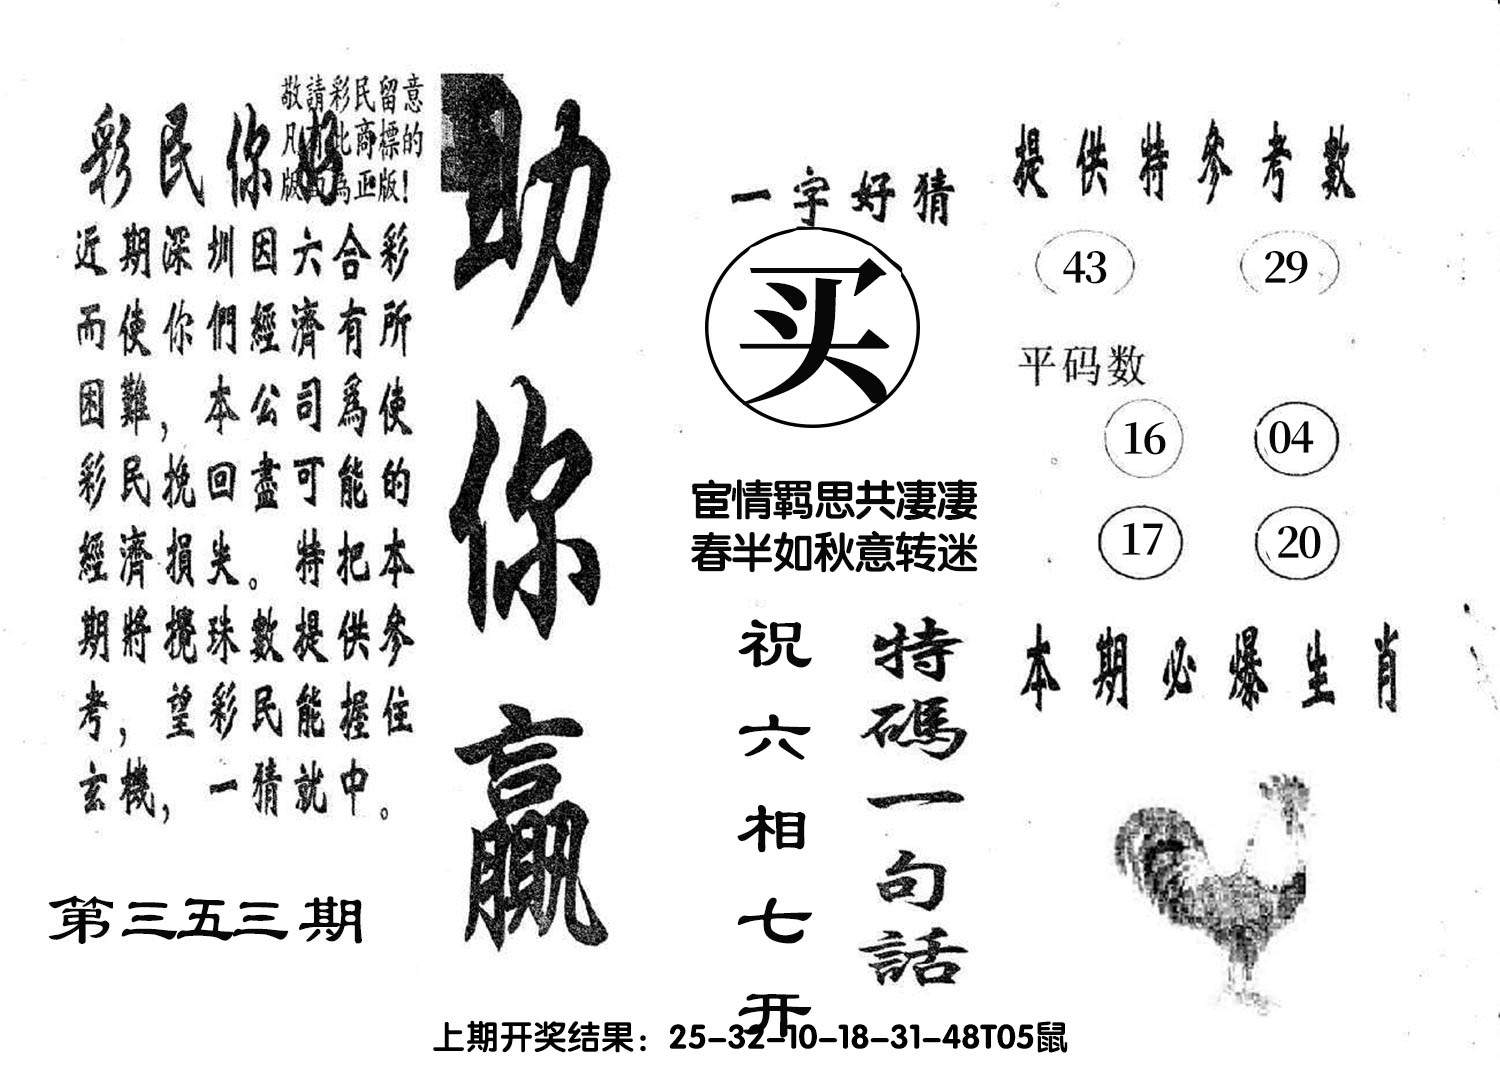 敬請彩民留意
凡有此商標的
版面為正版!
彩民你好
近期深圳因六合彩
而使你們經濟有所
困難,本公司爲使
彩民挽回盡可能的
經濟損失。特把本
期將攪珠數提供參
考,望彩民能握住
玄機,一猜就中。
第三五三期
助你贏
一字好猜
买
宦情羁思共凄凄
春半如秋意转迷
特碼一句話
祝六相七开
提供特參考數
43 29
平码数
16 04
17 20
本期必爆生肖
上期开奖结果：25-32-10-18-31-48T05鼠